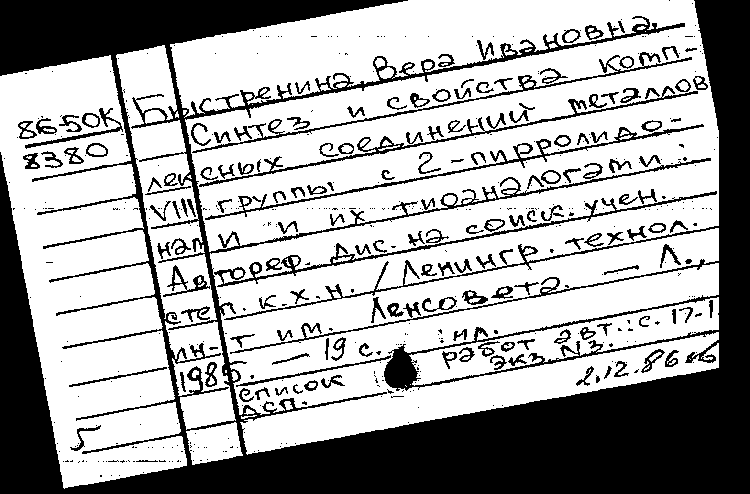 Быстренина, Вера Ивановна.
86-50К
8380
Синтез и свойства комп-
лексных соединений металлов
VIII группы с 2-пирролидо-
нами и их тиоаналогами :
Автореф. дис. на соиск. учен.
степ. к.х.н. / Ленингр. технол.
ин-т им. Ленсовета. — Л.,
1985. — 19 с. : ил.
список работ авт.: с. 17-1
дсп. экз. N3.
2.12.86
5